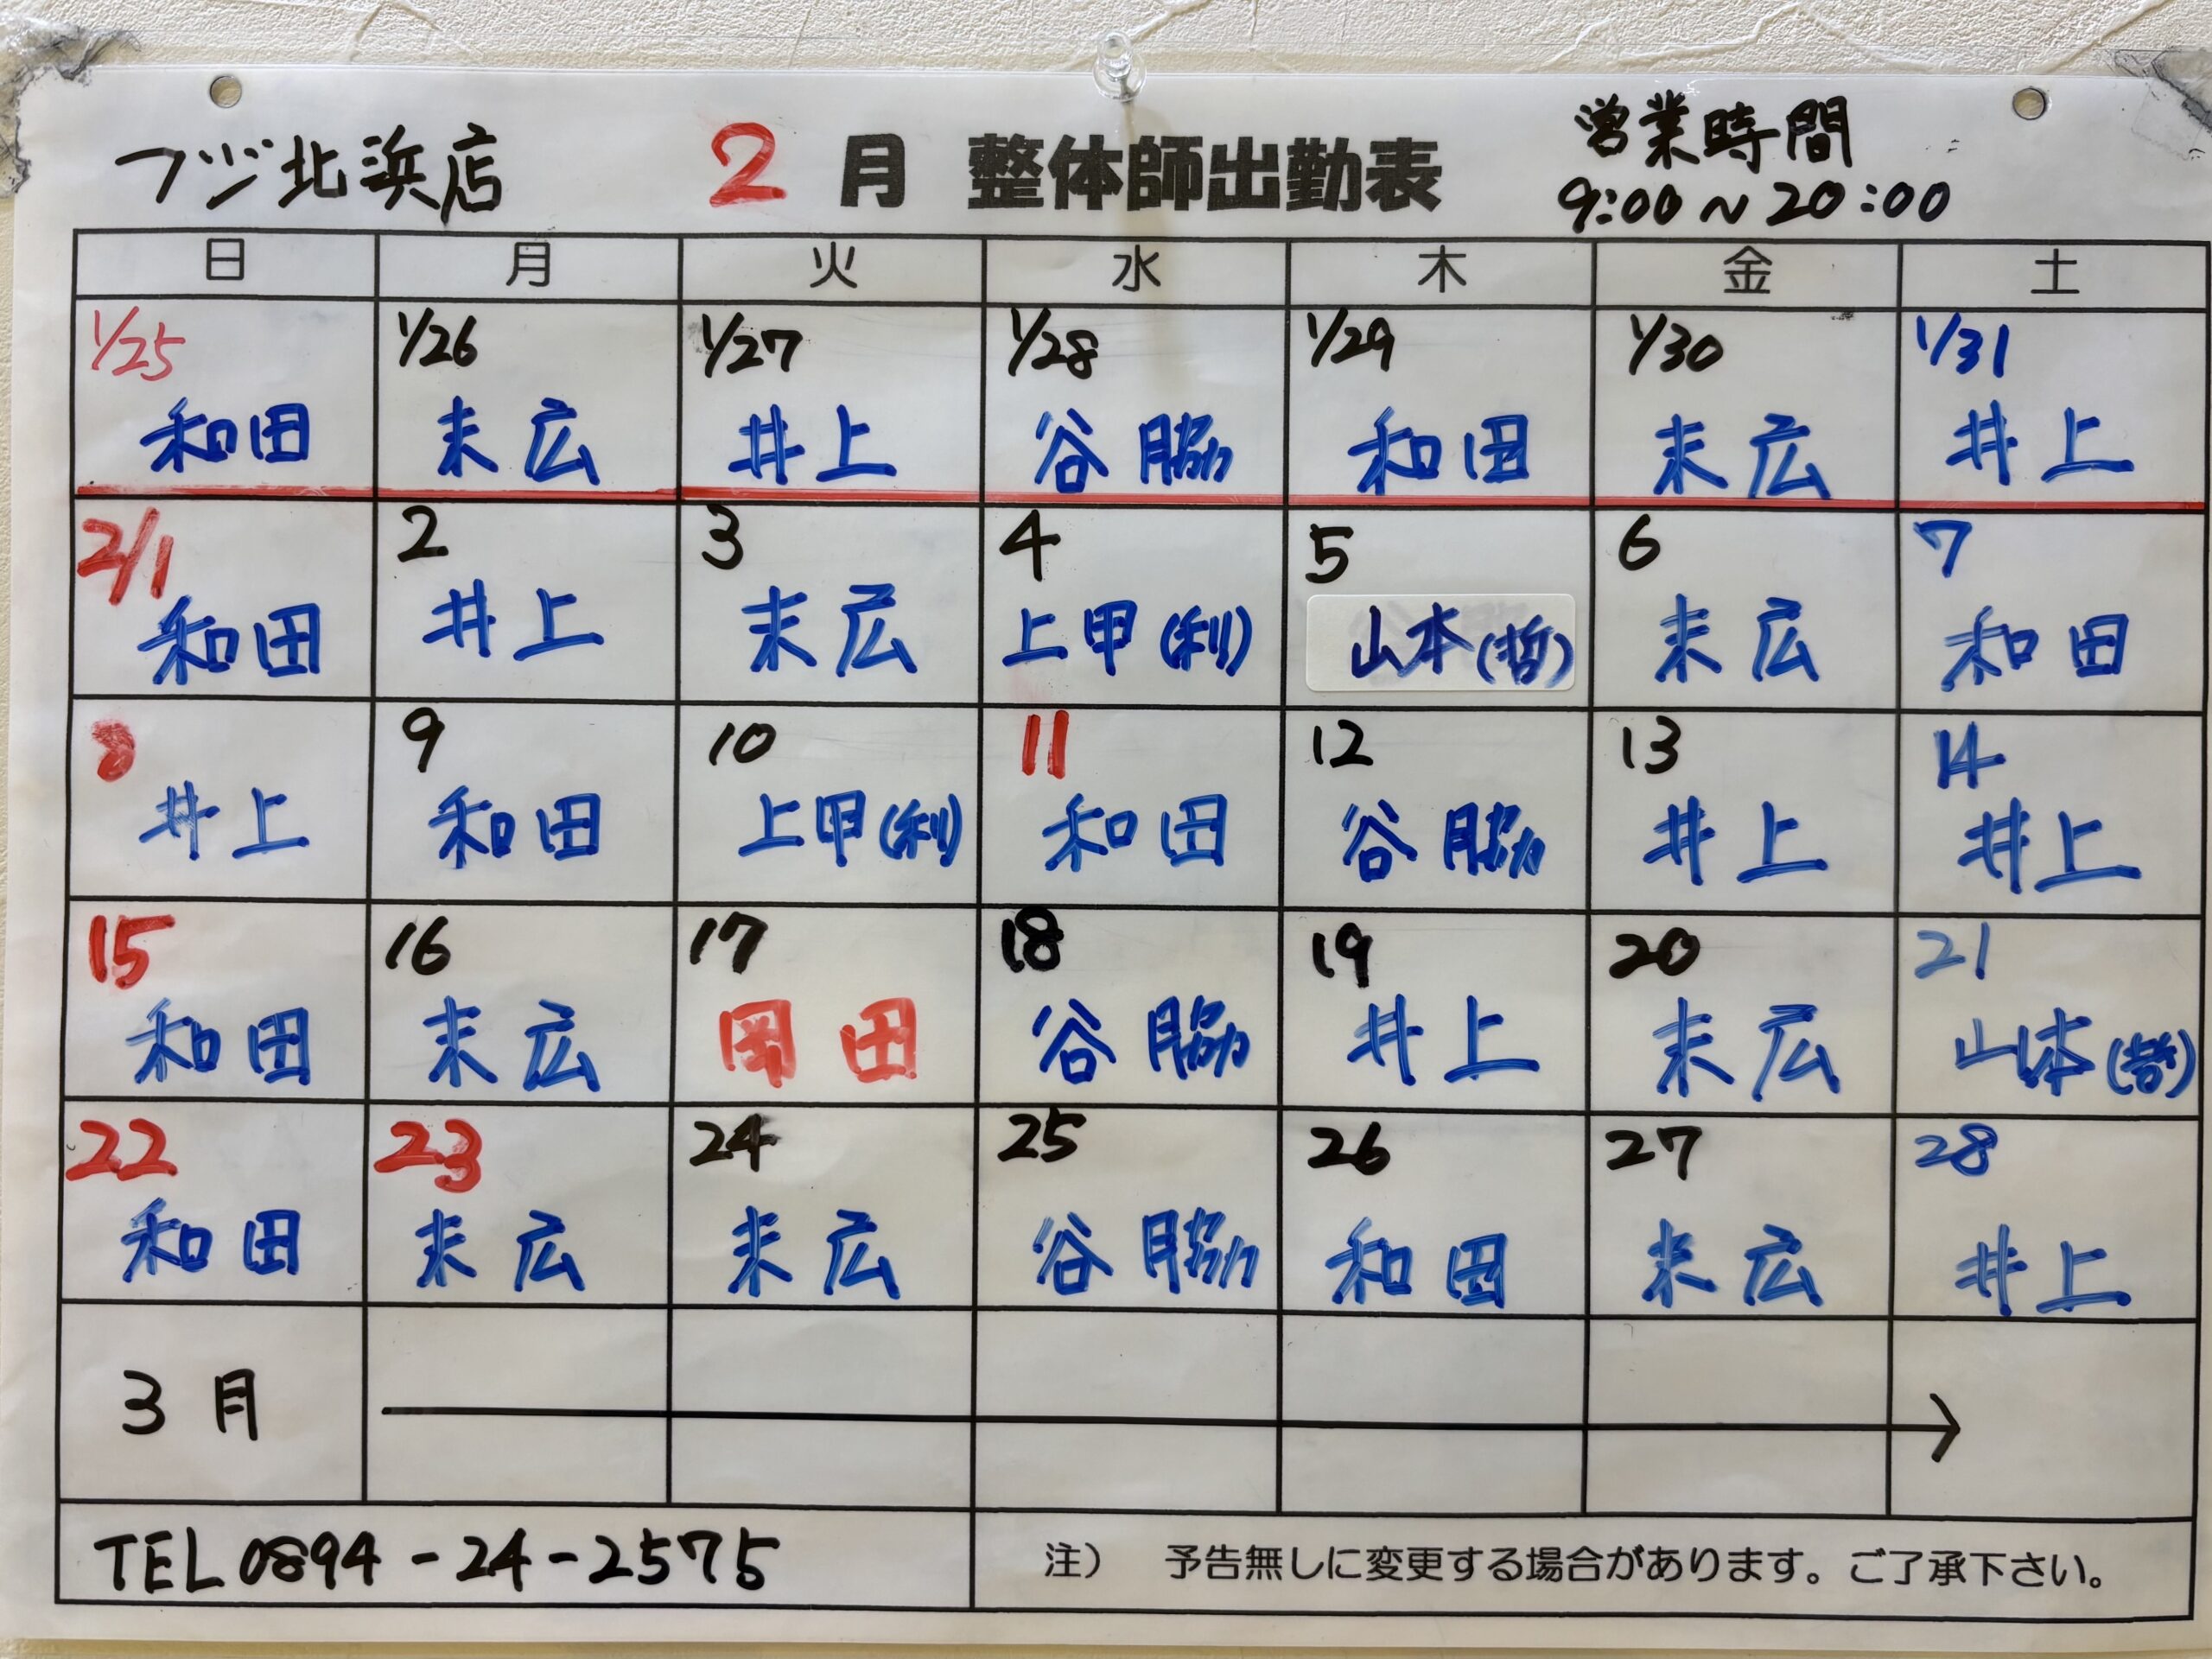 フジ北浜店 2月 整体師出勤表 営業時間
9:00~20:00
日 月 火 水 木 金 土
1/25 1/26 1/27 1/28 1/29 1/30 1/31
和田 末広 井上 谷脇 和田 末広 井上
2/1 2 3 4 5 6 7
和田 井上 末広 上甲(利) 山本(哲) 末広 和田
8 9 10 11 12 13 14
井上 和田 上甲(利) 和田 谷脇 井上 井上
15 16 17 18 19 20 21
和田 末広 岡田 谷脇 井上 末広 山本(哲)
22 23 24 25 26 27 28
和田 末広 末広 谷脇 和田 末広 井上
3月
TEL 0894-24-2575 注) 予告無しに変更する場合があります。ご了承下さい。